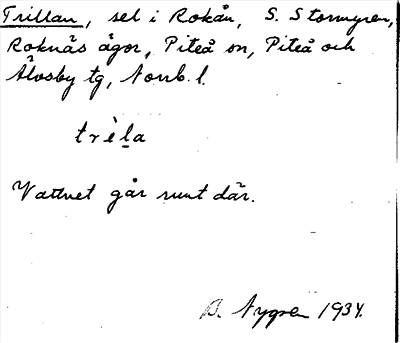 Trillan, sel i Rokån, S. Stormyren,
Roknäs ägor, Piteå sn, Piteå och
Älvsby tg, Norrb. l.
trèḷa
Vattnet går runt där.
B. Nygren 1934.